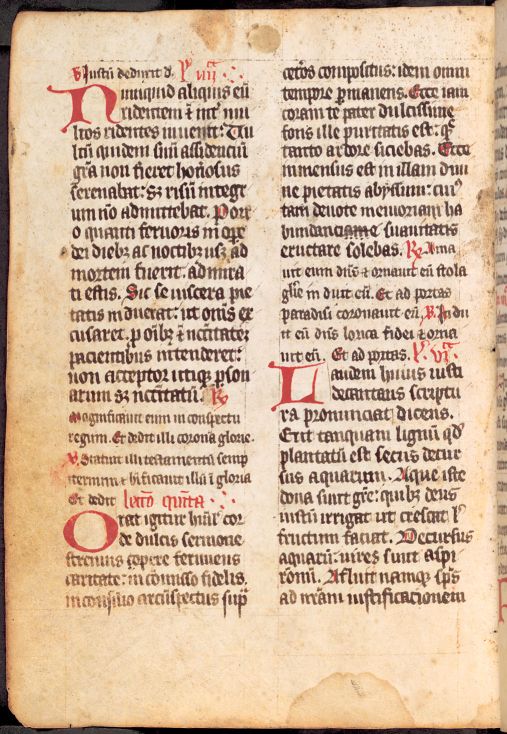 V Justū deduxit d. Lc iiij
Nunquid aliquis eū
ridentem ī inter mu
ltos ridentes inuenit: Uul
tū quidem suū assiduū
gr̄a non fieret honosus
serenabat: Sz risū integr
um nō admittebat. Porr
o quanti feruoris in ope
dei diebz ac noctibusz ad
mortem fuerit. admira
ti estis. Sic se uiscera pie
tatis induerat: ut omēs ex
cusaret. p oībz ē nccītatez
pacientibus intenderet:
non acceptor utiqz p̄son
arum sz nccitatū. R
Magnificauit eum in conspectu
regum. Et dedit illi corona glorie.
V Statuit illi testamentū semp
iternum et btificauit illū ī gloria
Et dedit lectō quinta
Orat igitur huīl cor
de dulcis sermone
strenuus corpore feruens
caritate: in cōmisso fidelis.
in consilio circūspectus sup
ceteros compositus: idem omni
tempore p̄manens. Ecce iam
coram te pater dulcissime
fons ille puritatis est: q̄
tanto ardore siciebas. Ecce
inmensus est in illam diui
ne pietatis abyssum: cui
tam deuote memoriam ha
bundanciame suauitatis
eructare solebas. R Ama
uit eum dn̄s et ornauit eū stola
glīe induit eū. Et ad portas
paradisi coronauit eū. V. Indu
it eū dn̄s lorica fidei et orna
uit eū. Et ad portas. Lc vj
Laudem huius iusti
decantans scriptu
ra pronunciat dicens.
Erit tanquam lignū qd
plantatū est secus decur
sus aquarum. Aque iste
dona sunt gr̄e: quibz deus
iustū irrigat ut crescat
fructum faciat. Decursus
aquarū: uires sunt aspi
rōnū. Afluit namqz sp̄s
ad nr̄am iustificacionem